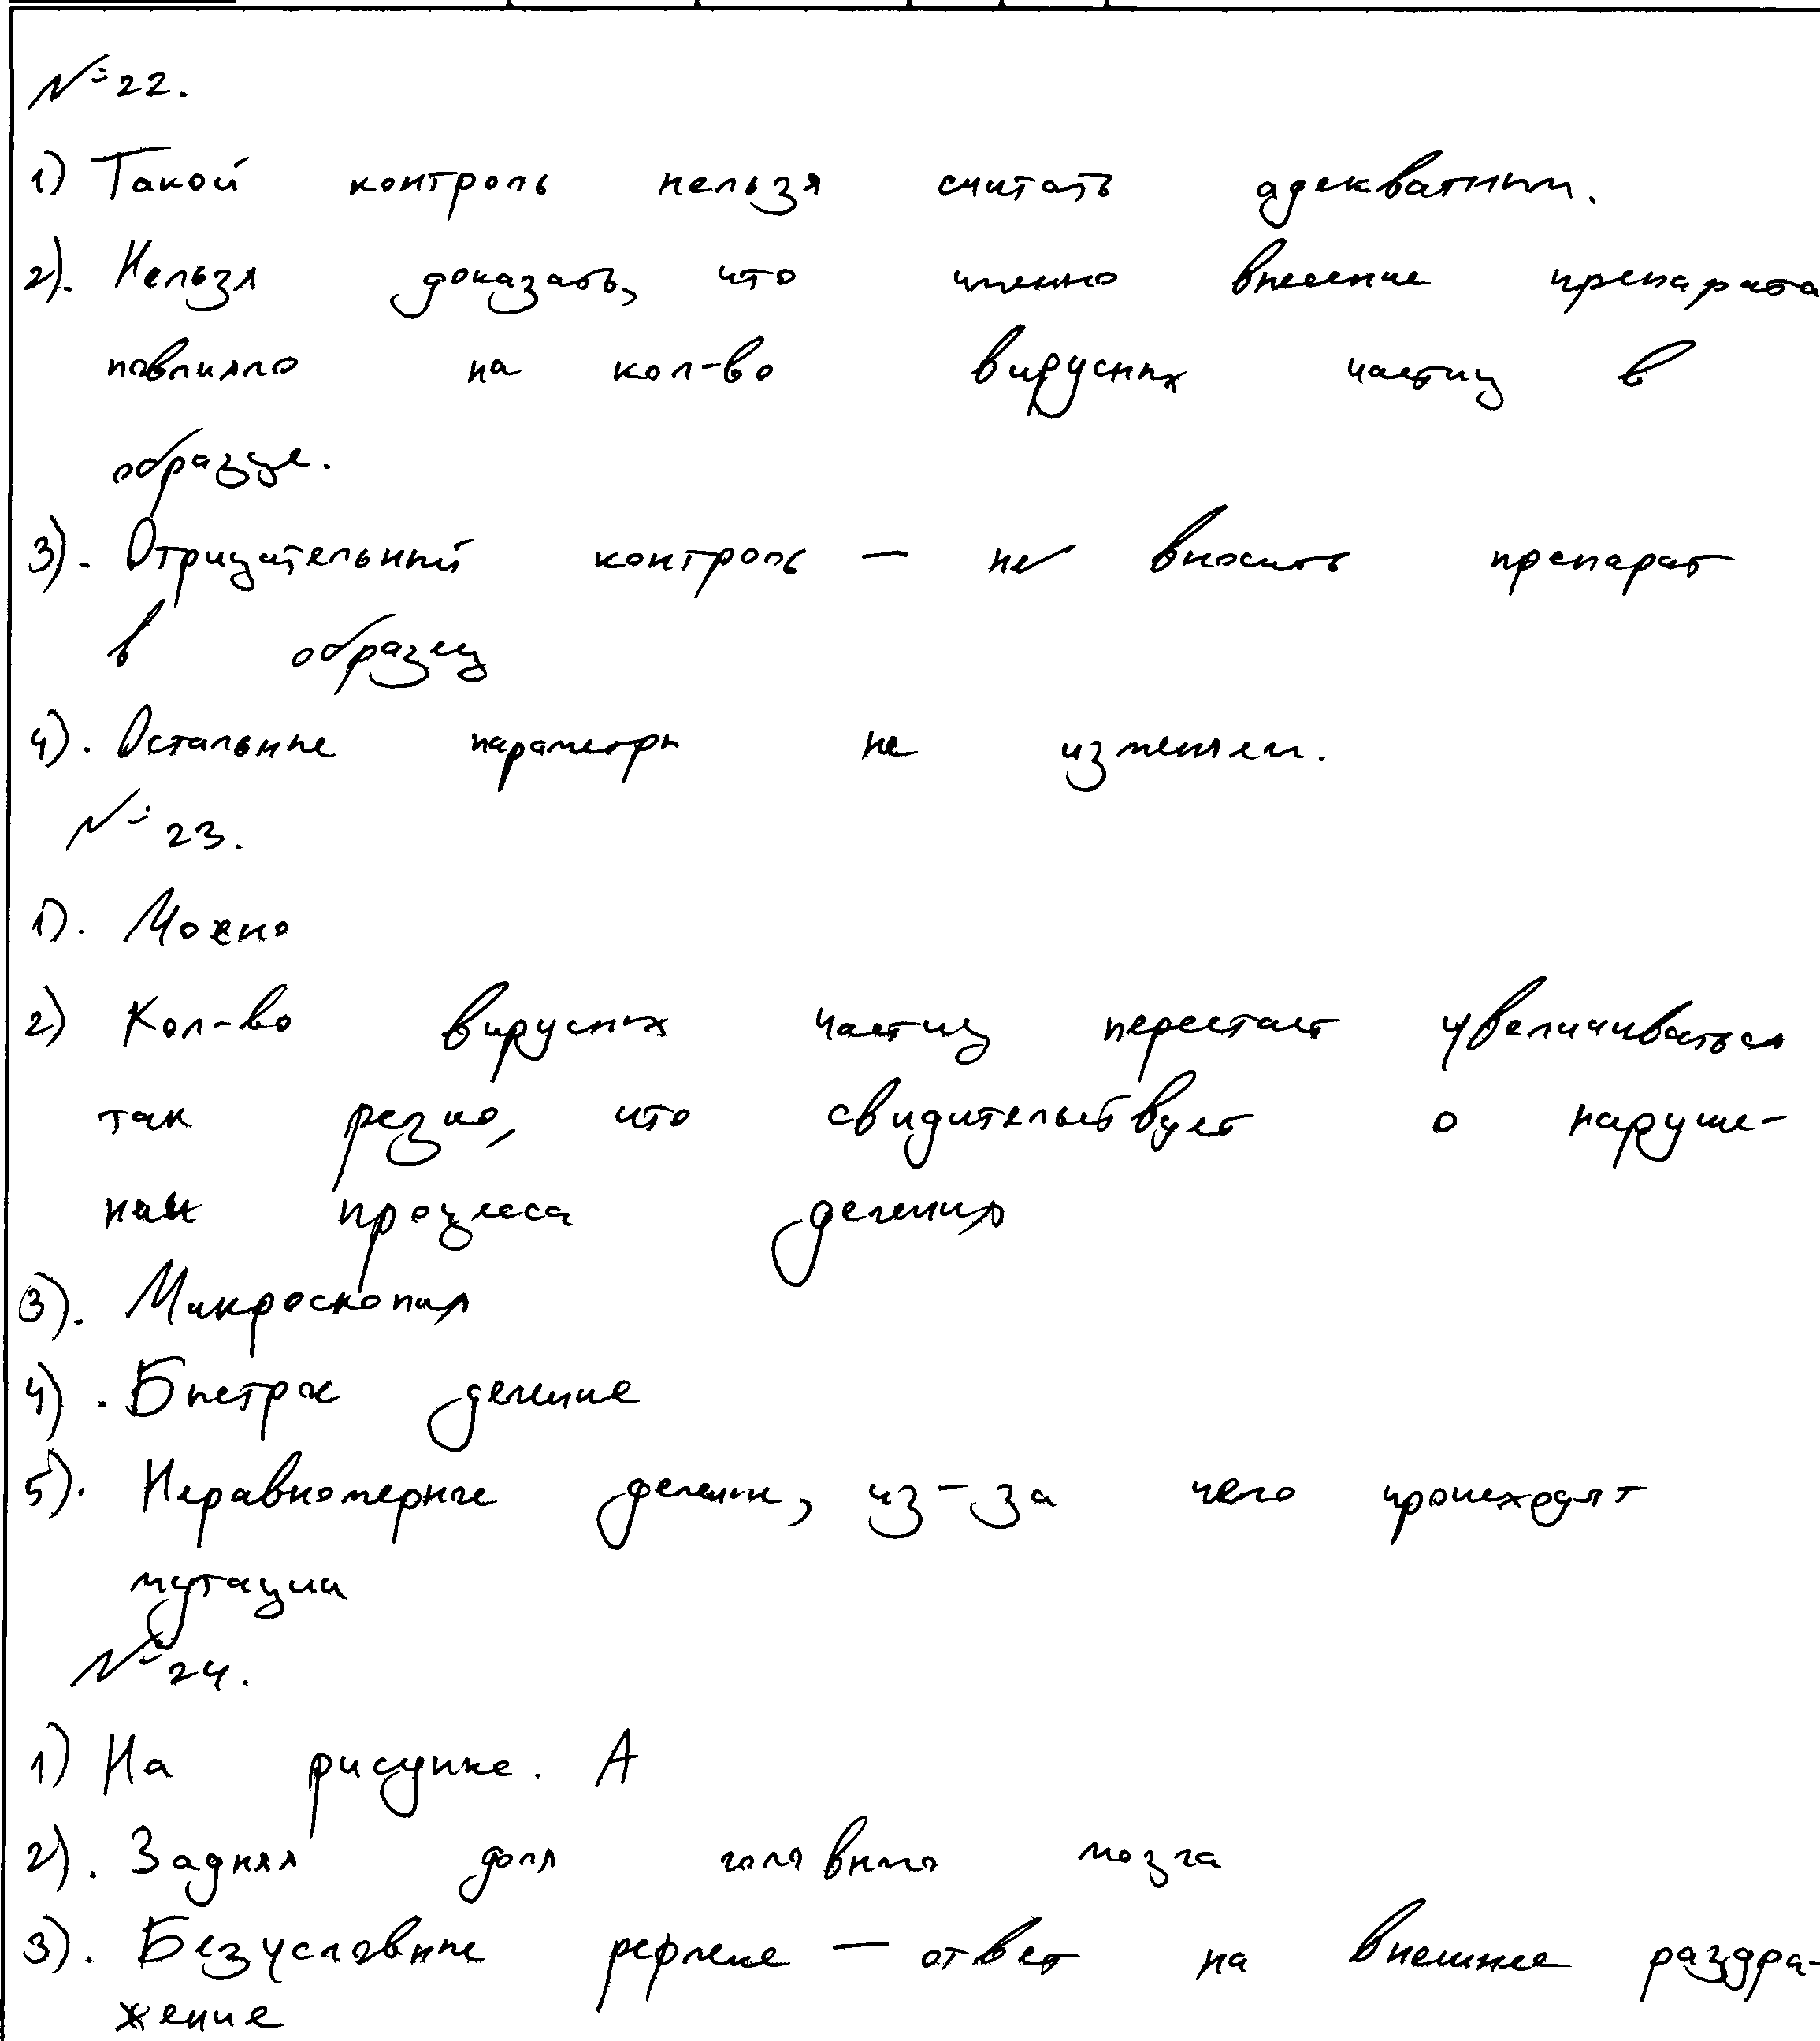 № 22.
1) Такой контроль нельзя считать адекватным.
2). Нельзя доказать, что именно внесение препарата
повлияло на кол-во вирусных частиц в
образце.
3). Отрицательный контроль — не вносить препарат
в образец
4). Остальные параметры не изменяем.
№ 23.
1). Можно
2) Кол-во вирусных частиц перестает увеличиваться
так резко, что свидительствует о наруше-
нии процесса деления
3). Микроскопия
4). Быстрое деление
5). Неравномерное деление, из-за чего происходят
мутации
№ 24.
1) На рисунке. А
2). Задняя доля головного мозга
3). Безусловные рефлекс — ответ на внешнее раздра-
жение